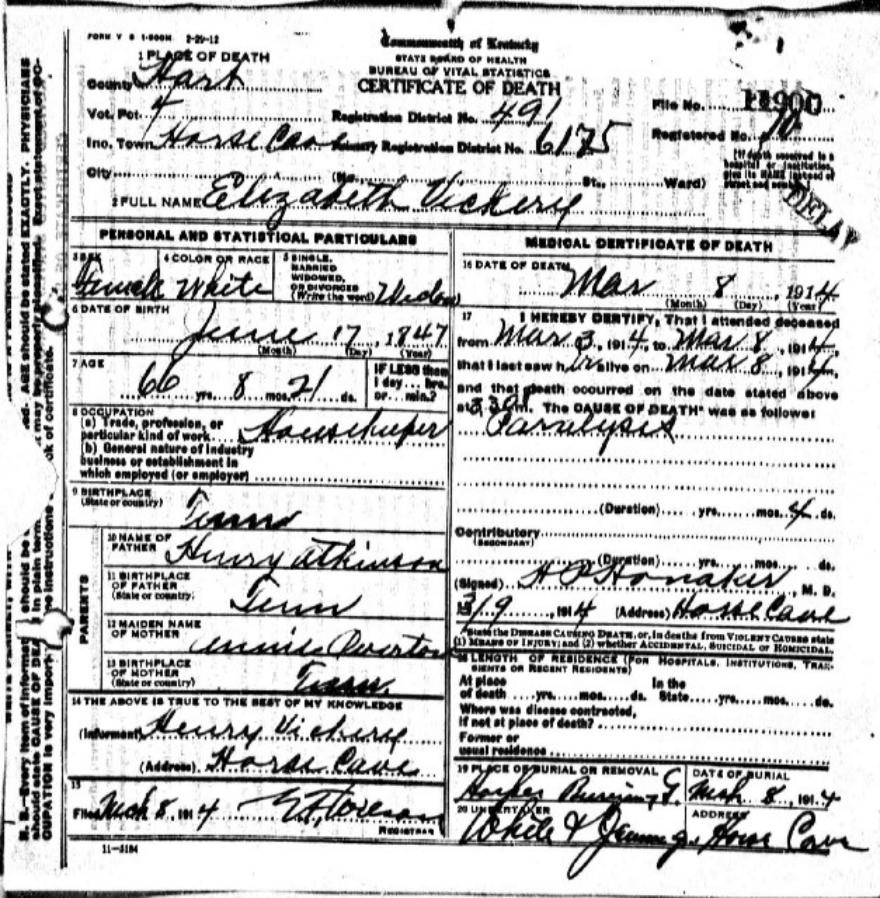 FORM V S 1-500M 2-29-12
Commonwealth of Kentucky
STATE BOARD OF HEALTH
BUREAU OF VITAL STATISTICS
CERTIFICATE OF DEATH
1 PLACE OF DEATH
County Hart
Vot. Pct 4 Registration District No. 491 File No. 11900
Inc. Town Horse Cave Primary Registration District No. 6175 Registered No.
City (No. St., Ward)
[If death occurred in a hospital or institution, give its NAME instead of street and number]
2 FULL NAME Elizabeth Vickery
DELAY
PERSONAL AND STATISTICAL PARTICULARS
3 SEX Female 4 COLOR OR RACE White 5 SINGLE, MARRIED WIDOWED, OR DIVORCED (Write the word) Widow
6 DATE OF BIRTH
June 17, 1847
(Month) (Day) (Year)
7 AGE
66 yrs. 8 mos. 21 ds.
IF LESS than 1 day... hrs. or... min.?
8 OCCUPATION
(a) Trade, profession, or particular kind of work Housekeeper
(b) General nature of industry
business or establishment in
which employed (or employer)
9 BIRTHPLACE
(State or country) Tenn
PARENTS
10 NAME OF FATHER Henry Atkinson
11 BIRTHPLACE OF FATHER
(State or country) Tenn
12 MAIDEN NAME OF MOTHER Annie Overton
13 BIRTHPLACE OF MOTHER
(State or country) Tenn.
14 THE ABOVE IS TRUE TO THE BEST OF MY KNOWLEDGE
(Informant) Henry Vickery
(Address) Horse Cave
15
Filed Mch 8, 1914
REGISTRAR
11-3184
MEDICAL CERTIFICATE OF DEATH
16 DATE OF DEATH
Mar 8, 1914
(Month) (Day) (Year)
17 I HEREBY CERTIFY, That I attended deceased
from Mar 3, 1914, to Mar 8, 1914,
that I last saw her alive on Mar 8, 1914,
and that death occurred on the date stated above
at m. The CAUSE OF DEATH* was as follows:
Paralysis
(Duration) yrs. mos. 4 ds.
Contributory
(SECONDARY)
(Duration) yrs. mos. ds.
(Signed) H P Honaker, M. D.
3/9, 1914 (Address) Horse Cave
*State the DISEASE CAUSING DEATH, or, in deaths from VIOLENT CAUSES state
(1) MEANS OF INJURY; and (2) whether ACCIDENTAL, SUICIDAL or HOMICIDAL.
18 LENGTH OF RESIDENCE (FOR HOSPITALS, INSTITUTIONS, TRANSIENTS OR RECENT RESIDENTS)
At place of death yrs. mos. ds. In the State yrs. mos. ds.
Where was disease contracted,
if not at place of death?
Former or
usual residence
19 PLACE OF BURIAL OR REMOVAL DATE OF BURIAL
Mch 8, 1914
20 UNDERTAKER ADDRESS
White & Horse Cave